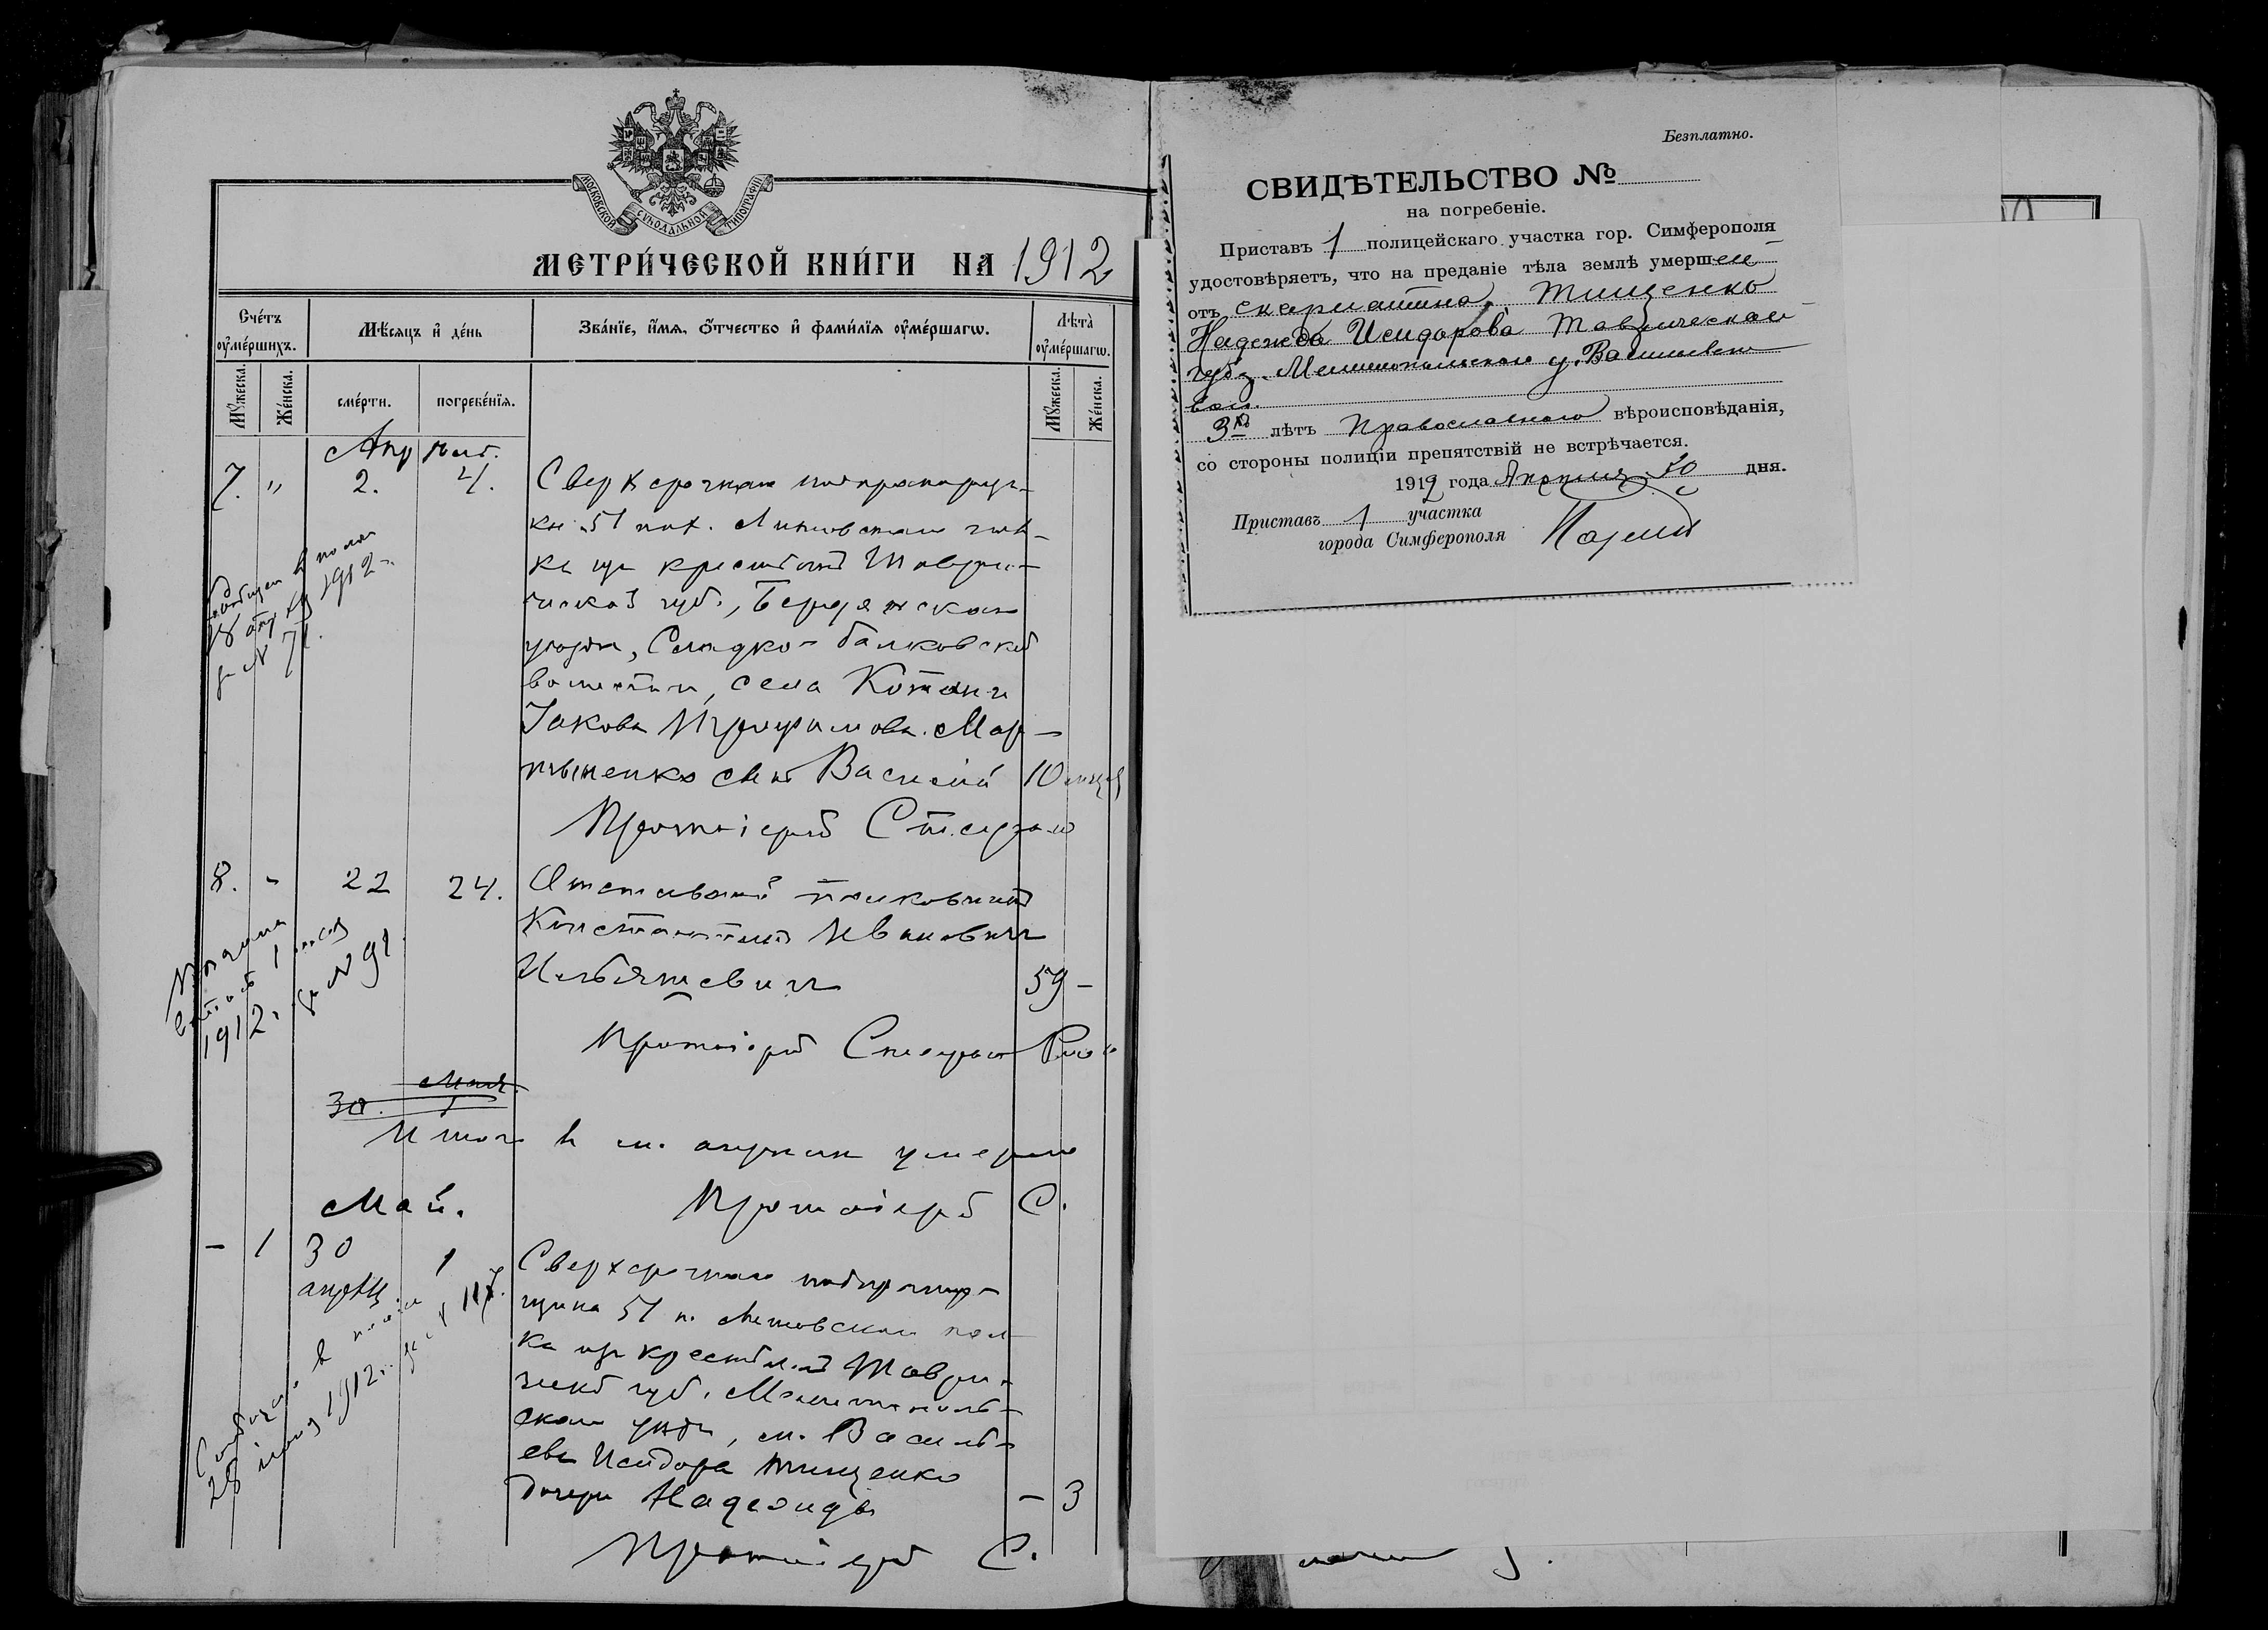 МОСКОВСКОЙ СѴНОДАЛЬНОЙ ТИПОГРАФІИ
МЕТРИ́ЧЕСКОЙ КНИ́ГИ НА 1912
Сче́тъ ᲂу҆ме́ршихъ.
Мѣ́сяцъ и҆ де́нь
Зва́нїе, и҆́мя, ѻ҆́тчество и҆ фами́лїя ᲂу҆ме́ршагѡ.
Лѣта̀ ᲂу҆ме́ршагѡ.
Мꙋ́жеска.
Же́нска.
сме́рти.
погребе́нїя.
Мꙋ́жеска.
Же́нска.
Апрѣль.
7. " 2. 4. Сверхсрочнаго подпрапорщи-
ка 51 пѣх. Литовскаго пол-
ка из крестьянъ Таври-
ческой губ., Бердянскаго
уѣзда, Сладко-балковской
волости, села
Іакова Трофимова Мар-
тыненко сынъ Василій 10 мѣсяц
Протоіерей Стефан
18 апрѣля 1912 г.
за № 71.
8. " 22 24. Отставной полковникъ
Константинъ Ивановичъ
Ильяшевичъ 59 -
1 мая
1912 г. за № 91
Протоіерей Стефан
Мая.
30. 1
Итого в м. апрѣлѣ умерло
Май. Протоіерей С.
- 1 30 1 Сверхсрочнаго подпрапор-
апрѣл. щика 51 п. Литовскаго пол-
ка из крестьянъ Таври-
ческ. губ. Мелитополь-
скаго уѣзда, м. Василь-
ева Исидора Тищенко
дочь Надежда - 3
Сообщено в
28 1912 г. за № 117.
Протоіерей С.
Безплатно.
СВИДѢТЕЛЬСТВО №
на погребеніе.
Приставъ 1 полицейскаго участка гор. Симферополя
удостовѣряетъ, что на преданіе тѣла землѣ умершей
отъ скарлатина, Тищенко
Надежда Исидорова Таврической
губ. Мелитопольскаго у. Васильевской
вол.
3хъ лѣтъ Православнаго вѣроисповѣданія,
со стороны полиціи препятствій не встрѣчается.
1912 года Апрѣля 30 дня.
Приставъ 1 участка
города Симферополя